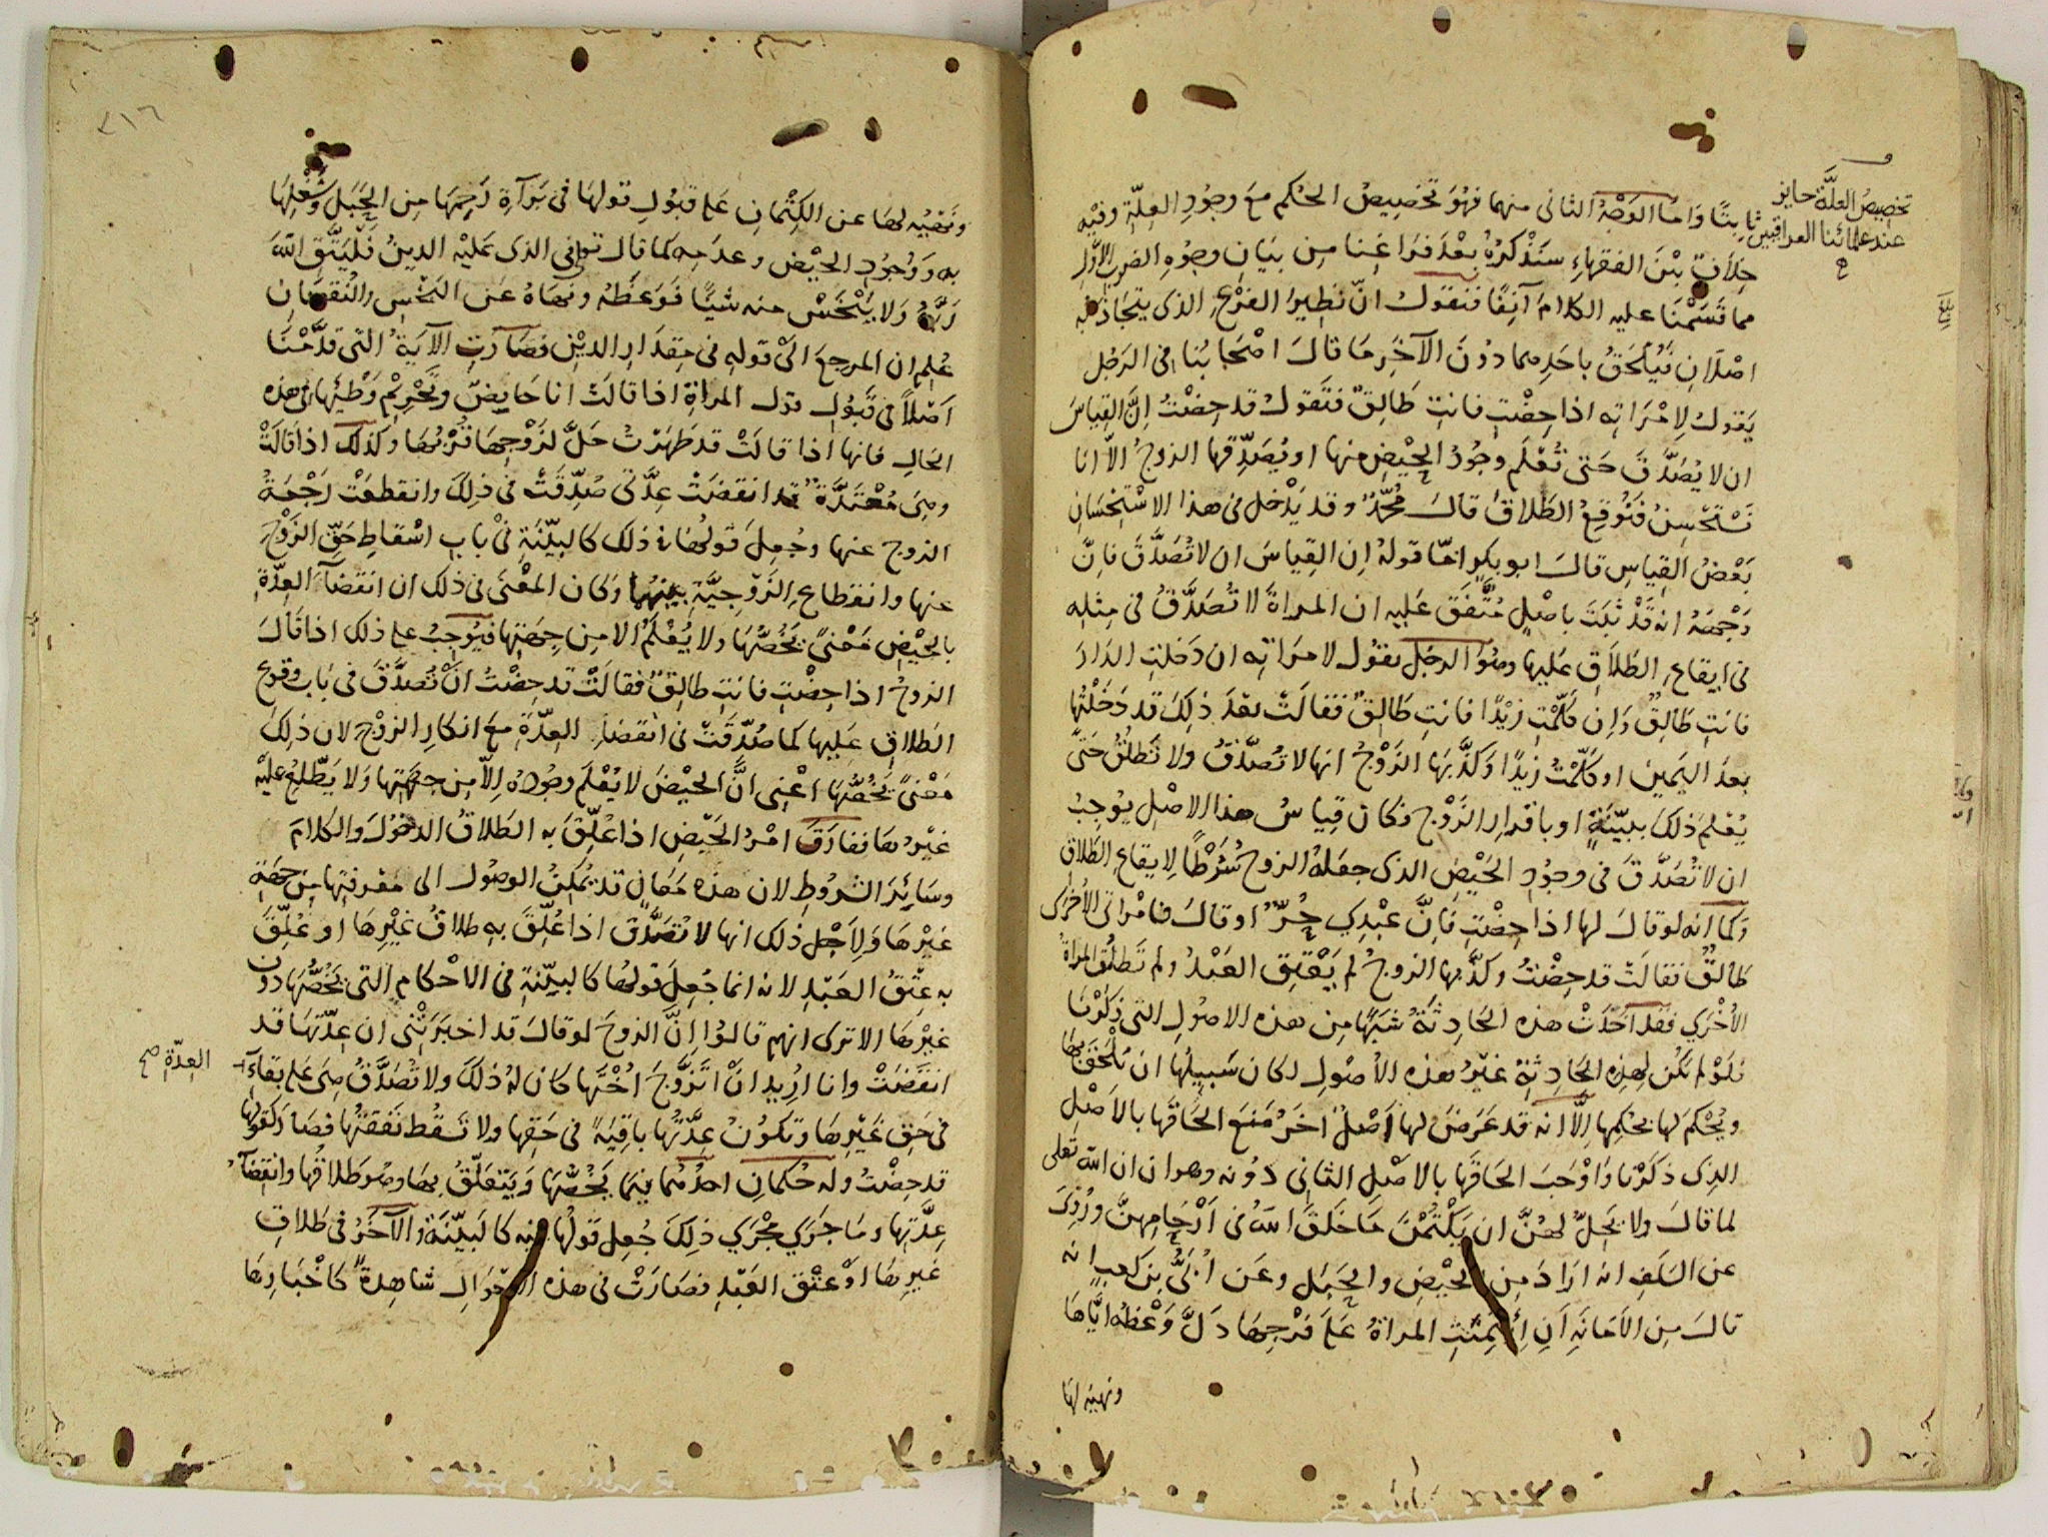 تخصيص العلة جايز
عند علمائنا العراقيين
ثابتًا وَامّا الوَجْهُ الثانى منهما فهُوَ تخصِيصُ الحُكم مَعَ وجُودِ العِلّةِ وفيْهِ
خِلَافٌ بيْنَ الفقهاءِ سَنَذْكرُهُ بعْدَ فرَاغِنا مِن بَيَانِ وجُوهِ الضربِ الأوَّلِ
مما قَسَمْنَا عليه الكلامَ آنِفًا فنقولُ انّ نظِيرَ الفرْعِ الذى يتجَاذبُه
اصْلَانِ فيُلْحَقُ باحَدِهما دوُنَ الآخَرِ مَا قالَ اصْحَابُنا فى الرَجُل
يَقولُ لِامْرَاتِه اذا حِضْتِ فانتِ طَالِقٌ فتَقولُ قد حِضْتُ اِنَّ القِياسَ
ان لا تُصَدَّقَ حَتى تُعْلَم وجُودُ الحيْضِ منها او يُصَدِّقها الزوجُ الّا انا
نَسْتَحْسِنُ فنُوقِعُ الطَلاقَ قالَ مُحمّدٌ وقد يَدْخل فى هذا الاسْتِحْسَانِ
بَعْضُ القِياسِ قالَ ابو بكرٍ امّا قولهُ اِن القِياسَ ان لا تُصَدَّقَ فاِنَّ
وَجْهَهُ انه قَدْ ثبَتَ باصْلٍ مُتَّفَقٍ عَليه ان المراةَ لا تُصَدَّقُ فى مِثلِه
فى ايقاعِ الطَلاقِ عَليها وهُوَ الرجُل يقُول لامرَاتِه ان دَخلتِ الدّارَ
فانتِ طَالِقٌ وَاِن كَلّمْتِ زيْدًا فانتِ طَالِقٌ فقالَتْ بعْدَ ذلِكَ قد دَخَلْتُها
بعدَ اليَمينِ او كَلّمْتُ زيدًا وَكذَّبَها الزَوْجُ انها لا تُصَدَّقُ ولا تَطلُقُ حَتى
يُعْلمَ ذلكَ ببيّنَةٍ او باقرارِ الزَوْج فكان قِياسُ هذا الاصْلِ يُوجِبُ
ان لا تُصَدَّقَ فى وجُودِ الحَيْضِ الذى جعَلهُ الزوج شَرْطًا لِايقاعِ الطَلاق
وَكما انه لو قالَ لها اذا حِضْتِ فاِنَّ عَبْدِى حُرٌّ او قالَ فامْراتى الاخرَى
طالقٌ فقالَتْ قد حِضْتُ وكذَّبها الزوجُ لم يَعْتِقِ العَبْدُ ولم تَطلُقِ المراةُ
الاُخْرى فقد اَخَذَتْ هذه الحَادِثَةُ شَبَهًا مِن هذه الاصُولِ التى ذكَرْنا
فلَوْ لم تكُن لِهذِه الحَادِثَةِ غَيْرُ هذه الاُصُولِ لكان سَبِيلُها ان تُلْحَقَ بها
ويُحْكَمَ لها بحُكمِها اِلّا انه قد عَرَضَ لها اَصْلٌ آخَرُ مَنعَ الحَاقَها بالاصْلِ
الذِى ذكَرْنا وَاَوْجَبَ الحَاقَها بالاصْلِ الثانِى دُونه وهو ان الله تعلى
لما قالَ ولا يَحِلُّ لهنَّ ان يَكْتُمْنَ مَا خَلقَ اللهُ فى اَرْحَامِهنَّ ورُوِىَ
عن السَلَفِ انه ارَادَ مِن الحيْضِ والحبَلِ وعَن اُبَىِّ بن كعبٍ انه
قالَ مِن الاَمَانَةِ اَنِ ائتُمِنَتِ المراةُ عَلَى فرْجِها دَلَّ وَعْظه ايَّاها
ونهيه لها
٢١٦
ونَهْيُه لها عن الكِتْمانِ عَلى قبُولِ قولها فى بَرَآءَةِ رَحِمِهَا مِن الحَبَلِ وشُغْلِها
به ووُجُودِ الحيْضِ وعدَمِه كما قالَ تعَالى فى الذى عَليْه الدينُ فلْيَتَّقِ اللهَ
رَبَّهُ وَلا يَبْخَسْ منه شيْئًا فوَعَظَهُ ونهَاهُ عَن البَخْسِ والنُقصَان
عُلِم ان المرجعَ الىْ قولِه فى مِقدَارِ الديْنِ فصَارَتِ الآيَةُ التى قدَّمْنَا
اَصْلاً فى قَبُولِ قول المراةِ اذا قالَتْ انا حَايِضٌ وتَحْرِيْمِ وَطْئِها فى هذه
الحَالِ فانها اذا قالَتْ قد طَهَرْتُ حَلَّ لزَوْجِها قُرْبُها وكذلك اذا قالَتْ
وهِىَ مُعْتَدَّةٌ قد انقضَتْ عِدَّتى صُدِّقَتْ فى ذلِكَ وانقطعَتْ رَجْعَةُ
الزوج عنها وجُعِلَ قولُها فى ذلك كالبيِّنَةِ فىْ بابِ اسْقاطِ حَقِّ الزَوْج
عنها وانقطاعِ الزَوْجِيَّةِ بينهما وَكان المعْنَى فى ذلك ان انقضآءَ العِدّةِ
بالحيْضِ مَعْنىً يخُصُّهَا ولا يُعْلَمُ الا مِن جِهَتِها فيُوجِبُ على ذلك اذا قالَ
الزوجُ اذا حِضْتِ فانتِ طالِقٌ فقالَتْ قد حِضْتُ انْ تُصَدَّقَ فى بَاب وقوع
الطلاقِ عَليها كما صُدِّقَتْ فى انقضاءِ العِدّةِ مَعَ انكارِ الزوْجِ لان ذلِكَ
مَعْنىً يَخُصُّهَا اعْنِى انَّ الحيْضَ لا يُعْلَم وجُودُه اِلّا مِن جِهَتِها وَلا يَطَّلِعُ عليْه
غيْرُها ففارَقَ امْرُ الحَيْضِ اذا عُلِّقَ به الطَلاقُ الدخولَ والكلامَ
وسَايِرَ الشروطِ لان هذه مَعَانٍ قد يُمكِنُ الوصُول الى مَعْرِفتِها مِن جِهَةِ
غيْرهَا وَلِاَجْل ذلك انها لا تُصَدَّق اذا عُلِّقَ به طلاقُ غيْرِها او عُلِّقَ
به عِتْقُ العَبْدِ لانه انما جُعِلَ قولها كالبيِّنةِ فى الاحْكامِ التى يَخُصُّهَا دون
غيْرِها الا ترى انهم قالوُا اِنَّ الزوجَ لو قالَ قد اخبَرَتْنِى ان عِدّتَهَا قد
انقضَتْ وانا ارِيدُ انْ اتَزَوَّجَ اُخْتَها كان لهُ ذلكَ ولا تُصَدَّقُ هِىَ عَلى بقاءِ
العِدّةِ صح
فى حَقِ غيْرِها وتكوُنُ عِدَّتُها باقِيَةً فى حَقِها ولا تَسْقُط نَفقَتُها فصَارَ كقولِها
قد حِضْتُ وله حُكمانِ احدُهُما فيما يَخُصُّها وَيَتعَلَّقُ بها وهُو طلاقُها وانقضآءُ
عِدَّتِها ومَا جَرَى مَجْرَى ذلِكَ جُعِلَ قولُها فيه كالبيّنَةِ والآخَرُ فى طَلاقِ
غيرِها اوْ عِتْقِ العَبْدِ فصَارَتْ فى هذه الاحْوَالِ شاهِدةً كاخْبَارِها